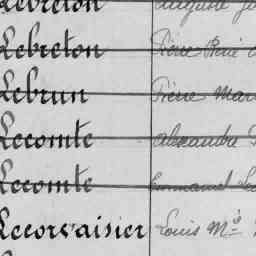 Lebreton Auguste
Lebreton Pierre René
Lebrun Pierre Mari
Lecomte Alexandre
Lecomte Emmanuel
Lecorvaisier Louis Mie